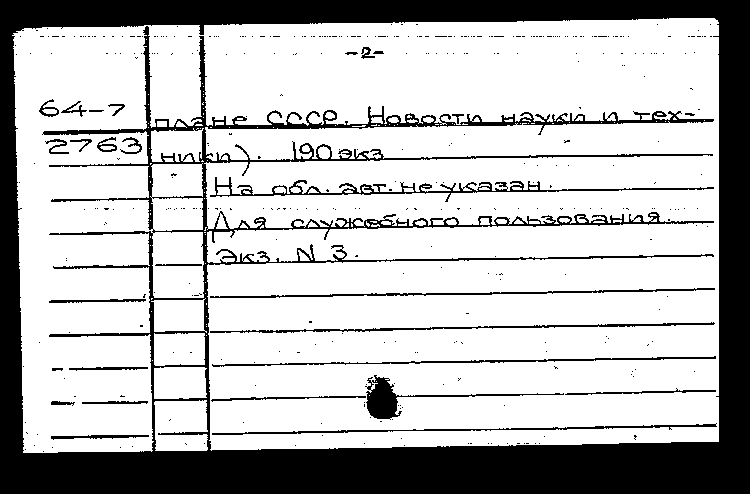 -2-
64-7 плане СССР. Новости науки и тех-
2763 ники). 190 экз
На обл. авт. не указан.
Для служебного пользования.
Экз. N 3.